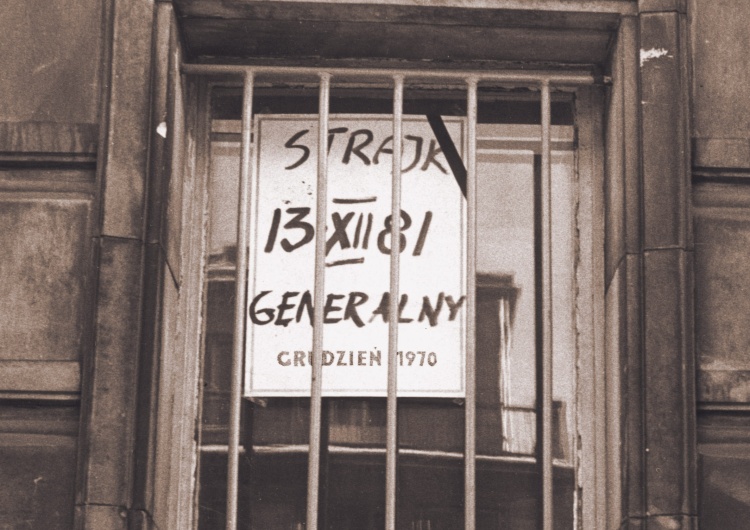 STRAJK
13 XII 81
GENERALNY
GRUDZIEŃ 1970